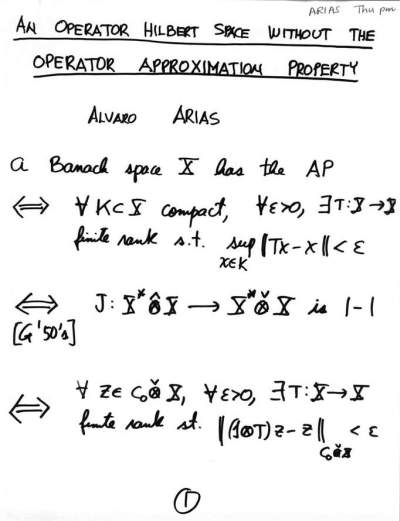 ARIAS Thu pm
AN OPERATOR HILBERT SPACE WITHOUT THE
OPERATOR APPROXIMATION PROPERTY
ALVARO ARIAS
a Banach space X has the AP
⟺ ∀ K⊂X compact, ∀ε>0, ∃T:X→X
finite rank s.t. sup ||Tx-x|| < ε
x∈K
⟺ J: X* ⊗̂ X ⟶ X* ⊗̌ X is 1-1
[G '50's]
⟺ ∀ z∈ C₀ ⊗̌ X, ∀ε>0, ∃T:X→X
finite rank st. ||(I⊗T)z-z|| < ε
C₀⊗̌X
①